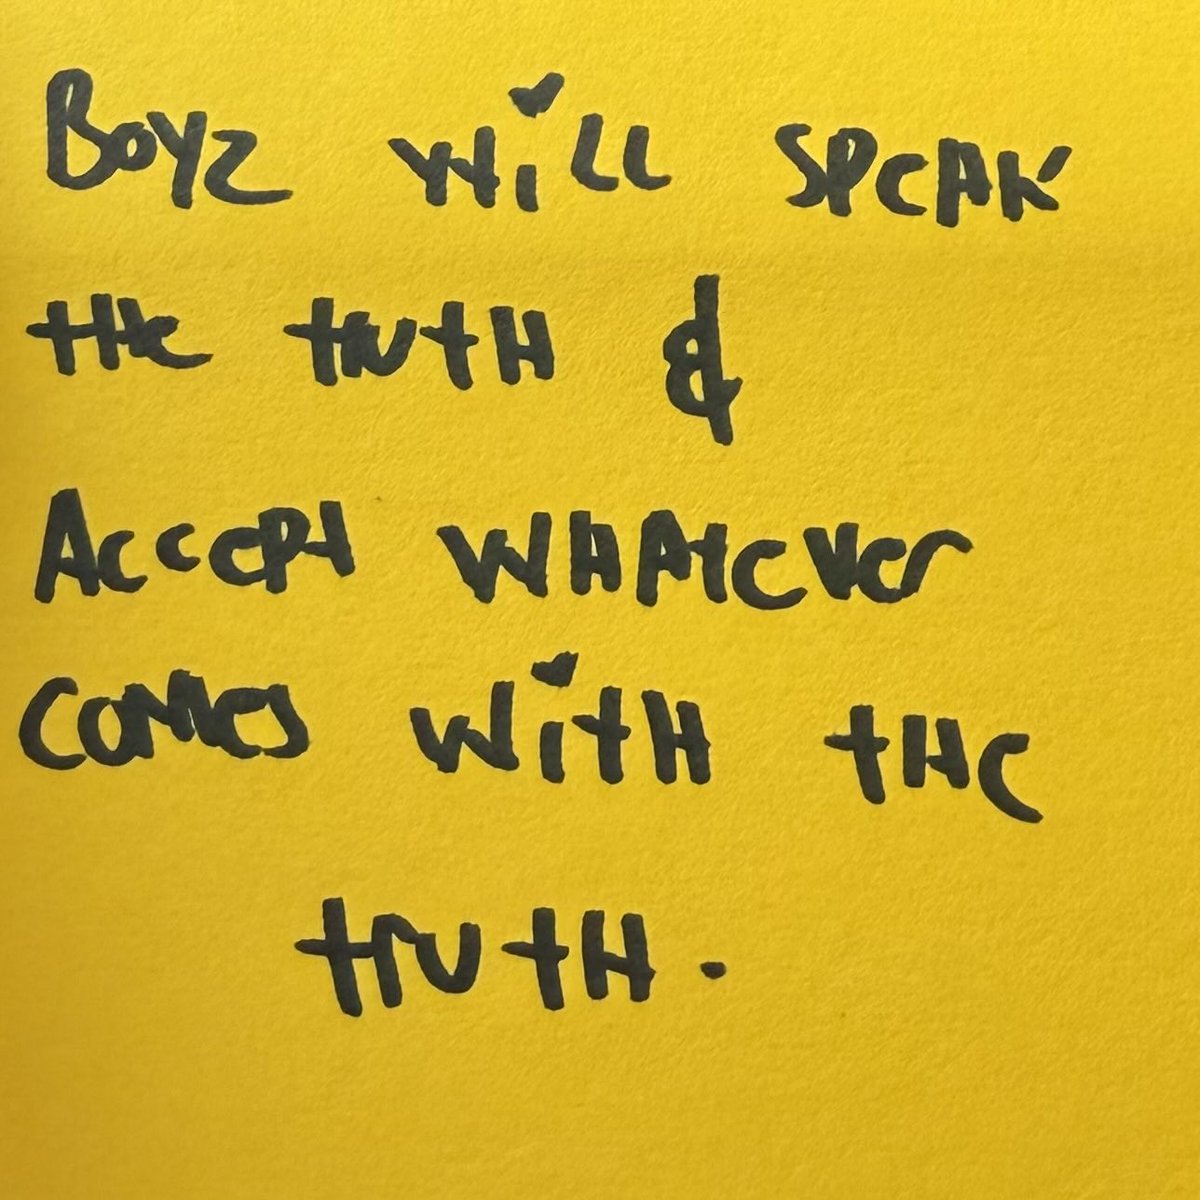 Boyz will speak
the truth &
Accept whatever
comes with the
truth.